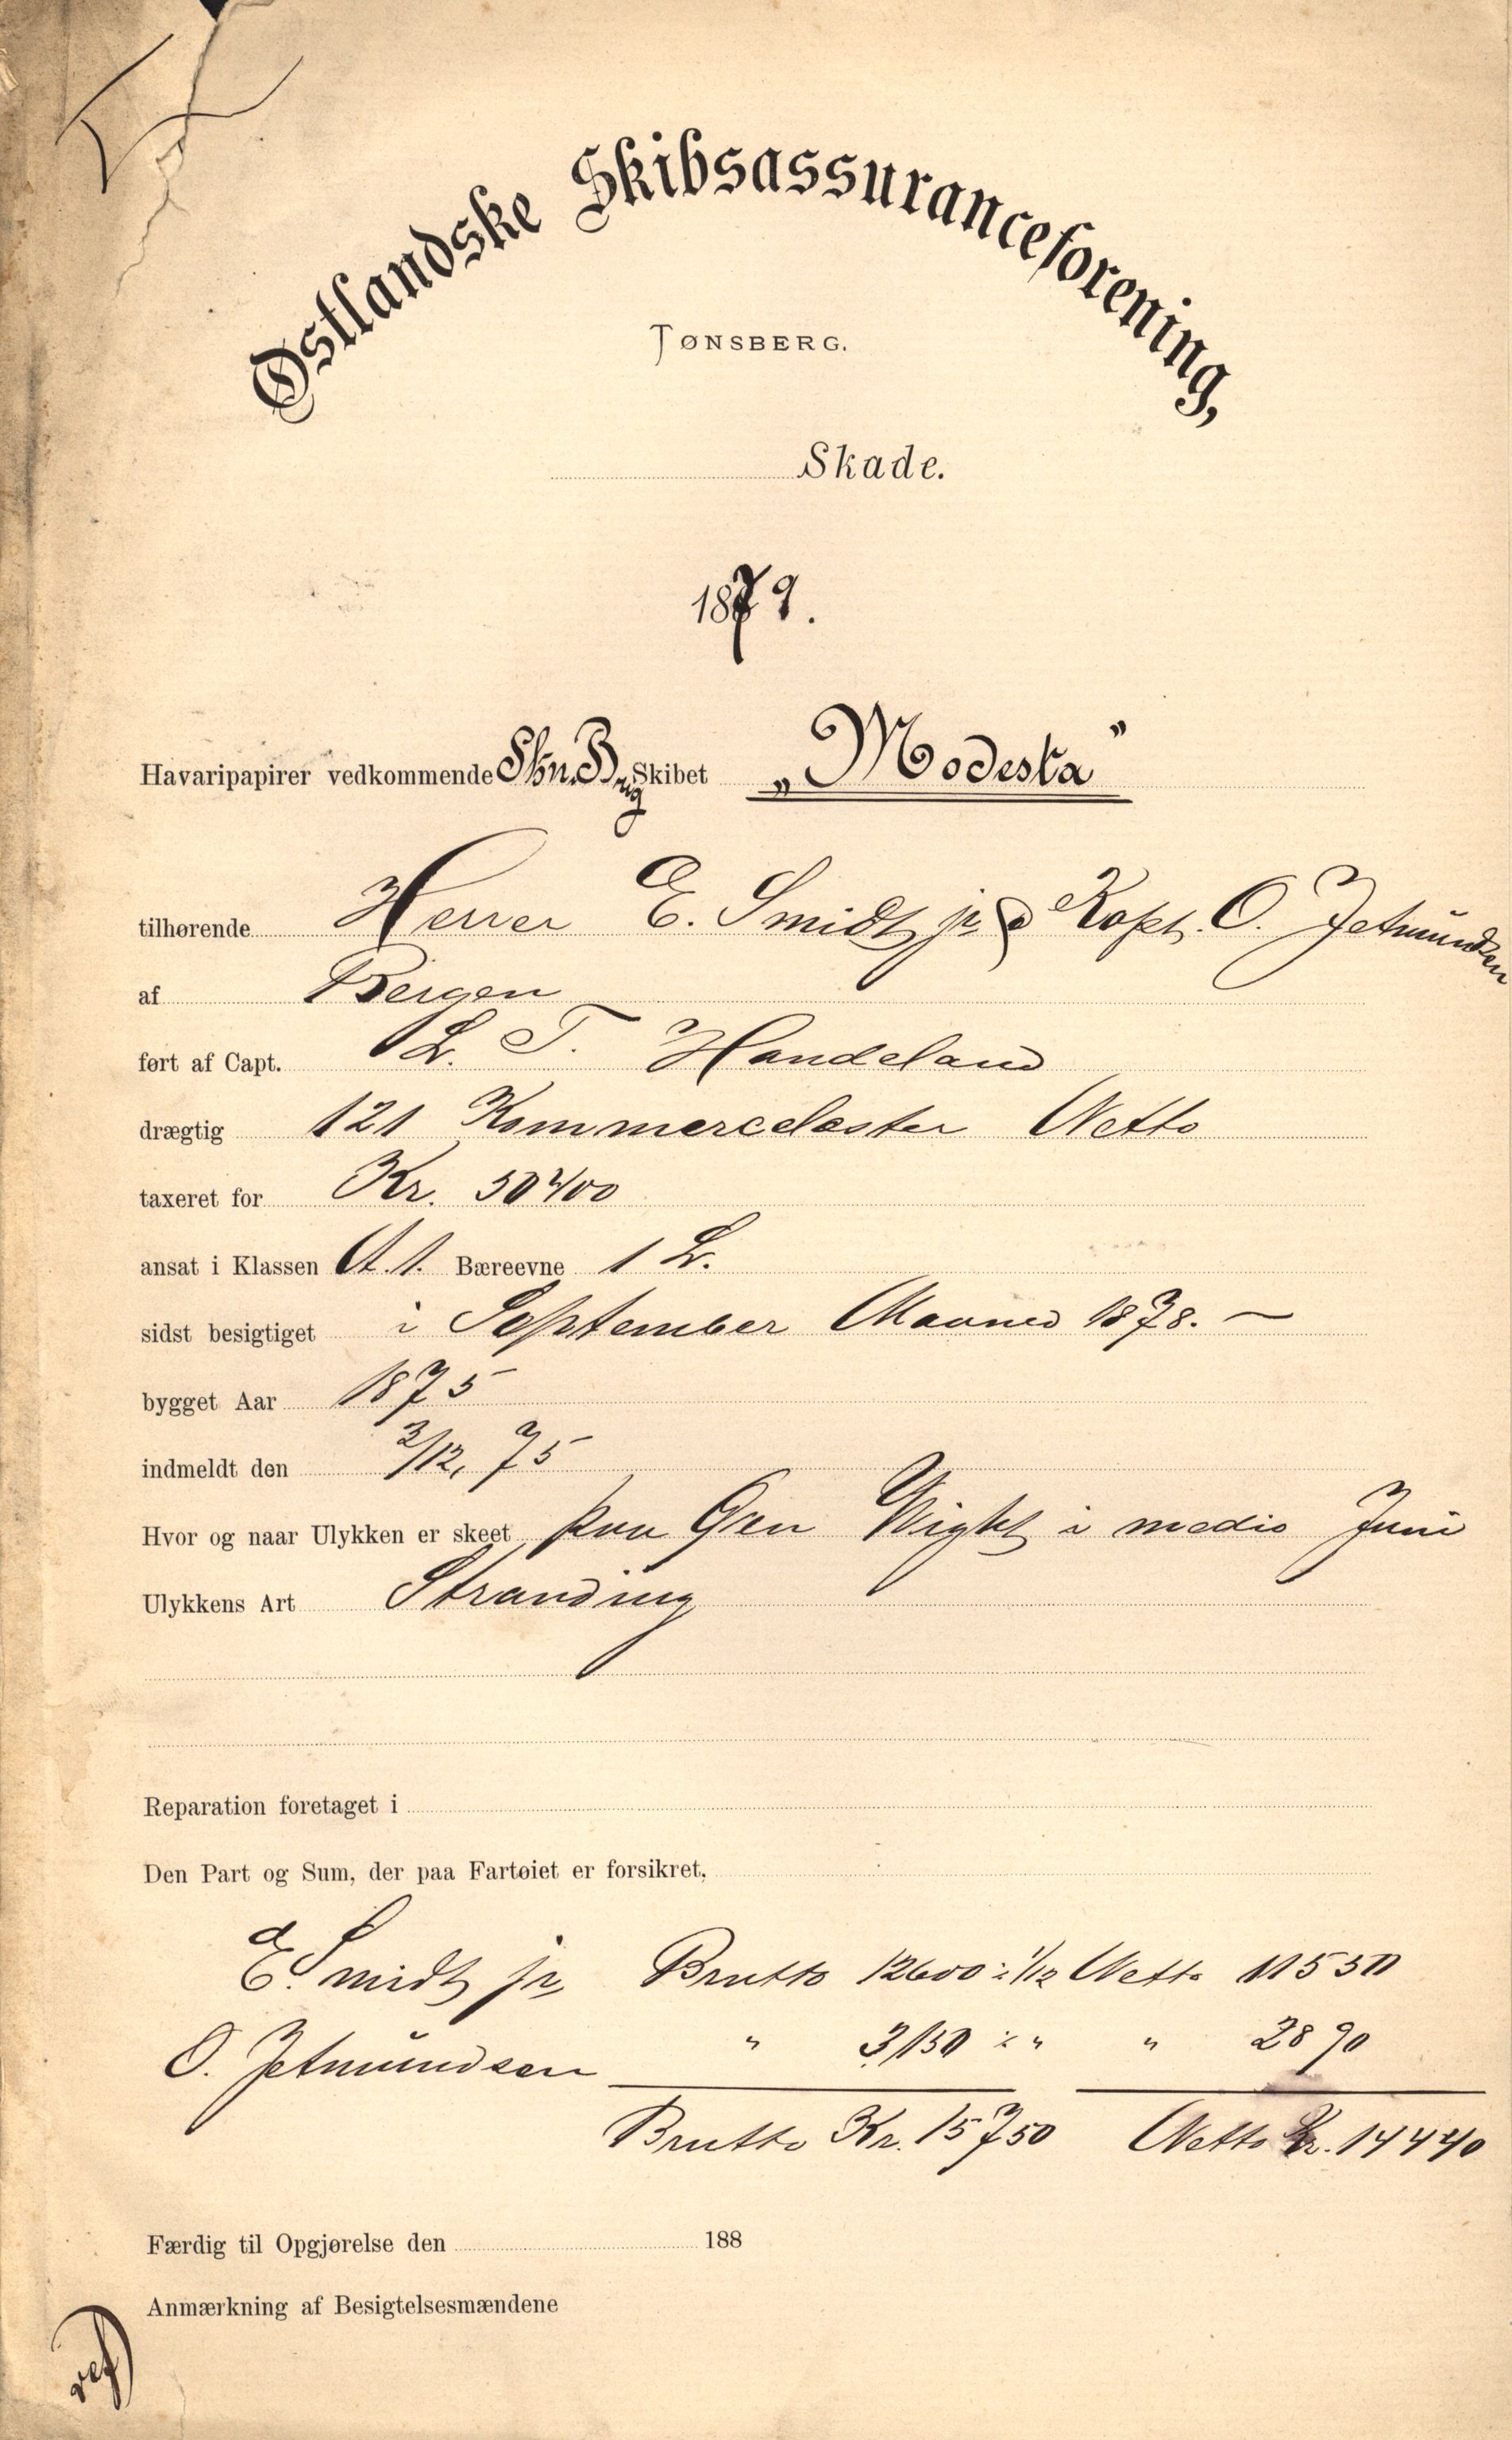 Østlandske Skibsassuranceforening,
TØNSBERG.
Skade.
1879.
Havaripapirer vedkommende Skn. Brig Skibet „Modesta"
tilhørende Herrer E. Smidt jr & Kapt. O. Jetmundsen
af Bergen
ført af Capt. L. T. Handeland
drægtig 121 Kommercelæster Netto
taxeret for Kr. 50400
ansat i Klassen A. 1. Bæreevne 1 L.
sidst besigtiget i September Maaned 1878. —
bygget Aar 1875
indmeldt den 3/12, 75
Hvor og naar Ulykken er skeet paa Øen Wight i medio Juni
Ulykkens Art Stranding
Reparation foretaget i
Den Part og Sum, der paa Fartøiet er forsikret,
E. Smidt jr Brutto 12600 ÷ 1/12 Netto 11550
O. Jetmundsen " 3150 ÷ " " 2890
Brutto Kr. 15750 Netto Kr. 14440
Færdig til Opgjørelse den 188
Anmærkning af Besigtelsesmændene